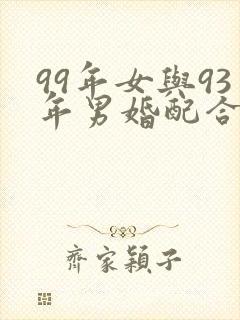 99年女與93
年男婚配合
齊家穎子